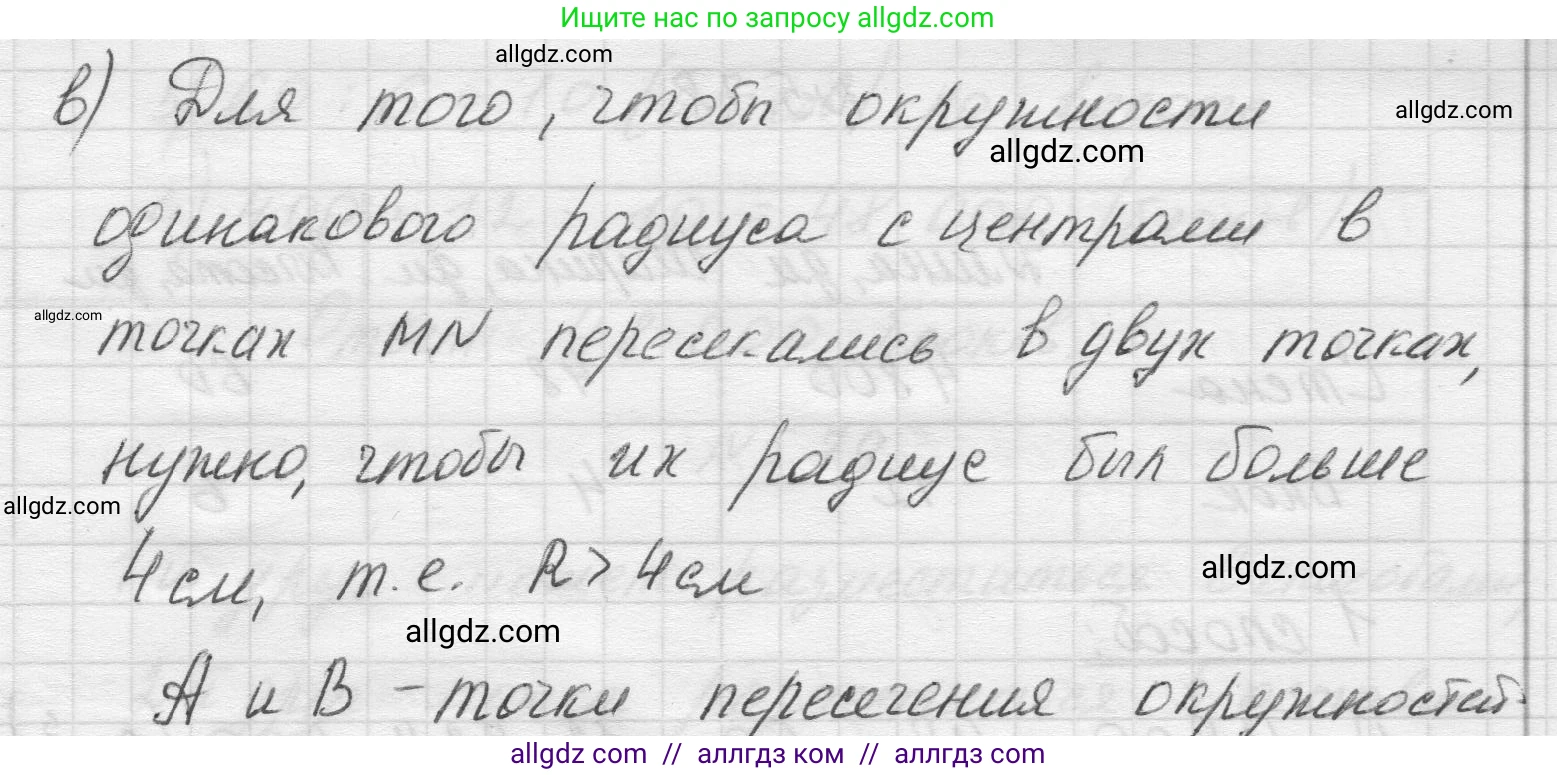 Ищите нас по запросу allgdz.com
allgdz.com
в) Для того, чтобы окружности
allgdz.com
allgdz.com
одинакового радиуса с центрами в
allgdz.com
точках MN пересекались в двух точках,
нужно, чтобы их радиус был больше
allgdz.com
4 см, т.е. R > 4 см
allgdz.com
allgdz.com
A и B – точки пересечения окружностей.
allgdz.com // аллгдз ком // аллгдз.com